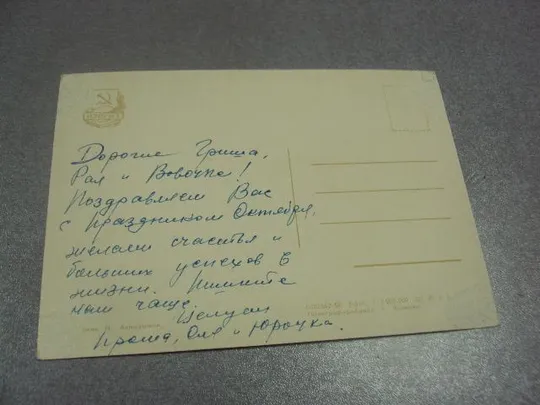 Дорогие Гриша,
Рая и Вовочка!
Поздравляем Вас
с праздником Октября,
желаем счастья и
больших успехов в
жизни. Пишите
нам чаще.
Целуем
Проша, Оля и Юрочка.